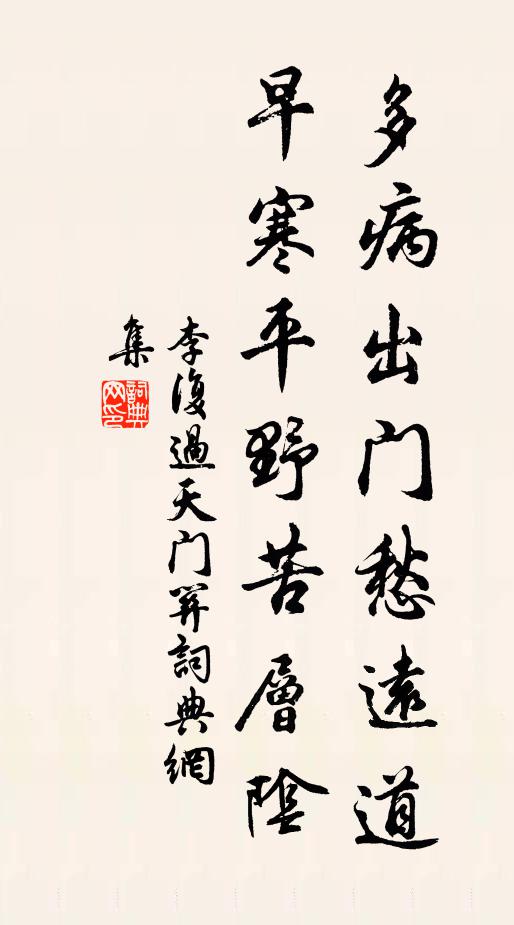 多病出门愁遠道
早寒平野苦層陰
李復過天门关詞典網
集
詞典网印